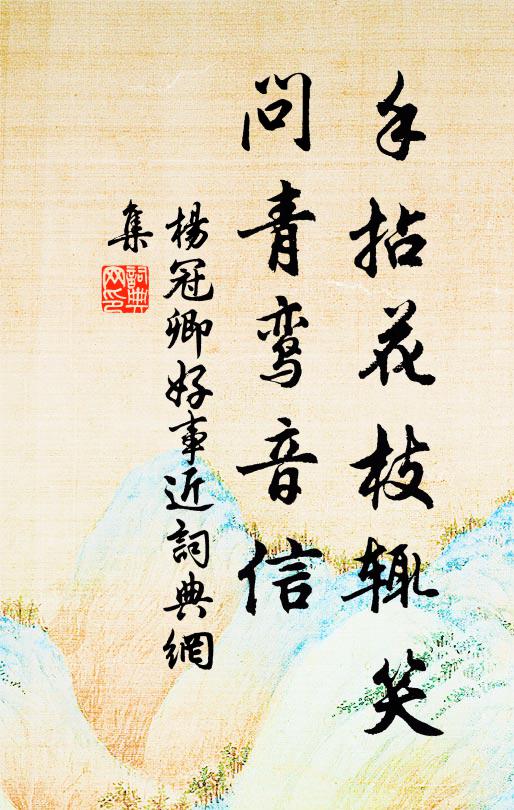 手拈花枝辄笑
问青鸾音信
楊冠卿好事近詞典網
集
詞典
网印